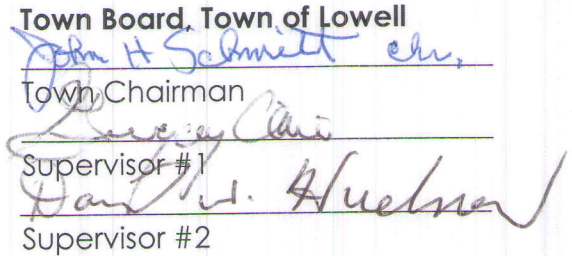 Town Board, Town of Lowell
John H Schmitt chr.
Town Chairman
Supervisor #1
W. Hudson
Supervisor #2